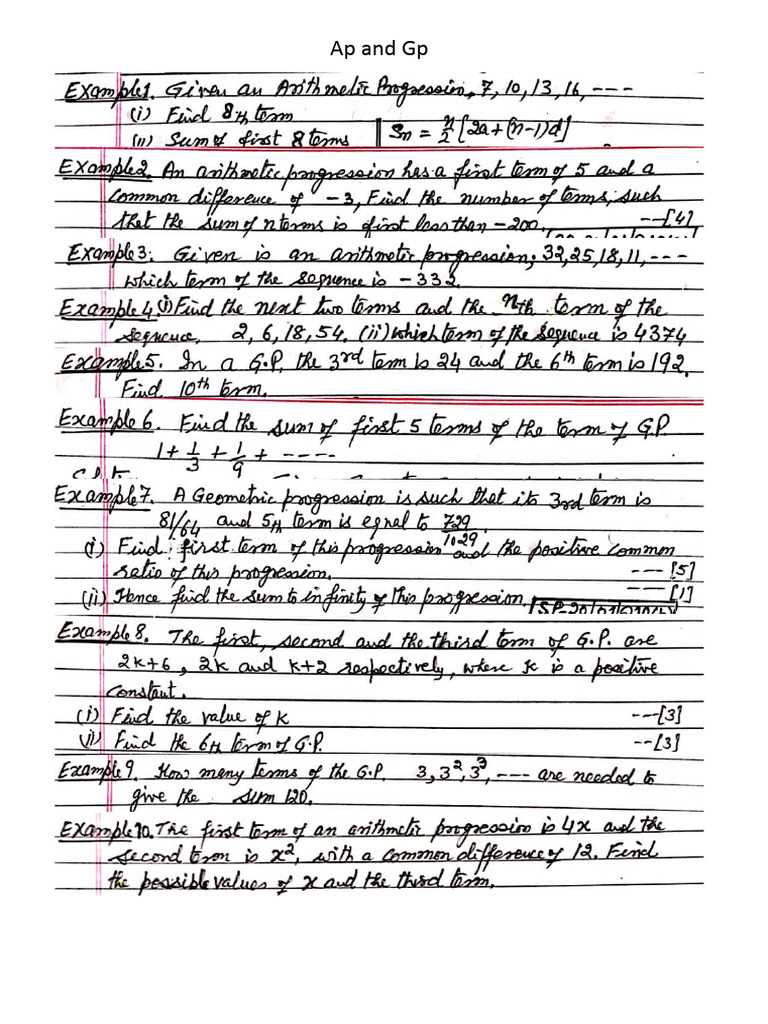 Ap and Gp
Example1. Given an Arithmetic Progression, 7, 10, 13, 16, ---
(i) Find 8th term
(ii) Sum of first 8 terms || Sn = n/2 [2a+(n-1)d]
Example2. An arithmetic progression has a first term of 5 and a
common difference of -3, Find the number of terms, such
that the sum of n terms is first less than -200. --[4]
Example3: Given is an arithmetic progression, 32, 25, 18, 11, ---
which term of the sequence is -332.
Example 4.(i) Find the next two terms and the nth term of the
sequence. 2, 6, 18, 54. (ii) which term of the sequence is 4374
Example5. In a G.P. the 3rd term is 24 and the 6th term is 192.
Find 10th term.
Example 6. Find the sum of first 5 terms of the term of G.P.
1 + 1/3 + 1/9 + ----
Example7. A Geometric progression is such that its 3rd term is
81/64 and 5th term is equal to 729/1029
(i) Find first term of this progression and the positive common
ratio of this progression. --- [5]
(ii) Hence find the sum to infinity of this progression. --- [1]
Example8. The first, second and the third term of G.P. are
2k+6, 2k and k+2 respectively, where k is a positive
constant.
(i) Find the value of k ---[3]
(ii) Find the 6th term of G.P. --[3]
Example9. How many terms of the G.P. 3, 3², 3³, --- are needed to
give the sum 120.
Example10. The first term of an arithmetic progression is 4x and the
second term is x², with a common difference of 12. Find
the possible values of x and the third term.